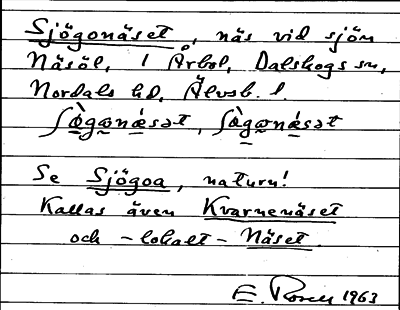 Sjögonäset, näs vid sjön
Näsöl, i Årbol, Dalskogs sn,
Nordals hd, Älvsb. l.
ʃɷ̀gɷnǽsət, ʃɷ̀gɷnǽsət
Se Sjögoa, naturn!
Kallas även Kvarnenäset
och – lokalt – Näset.
E. 1963